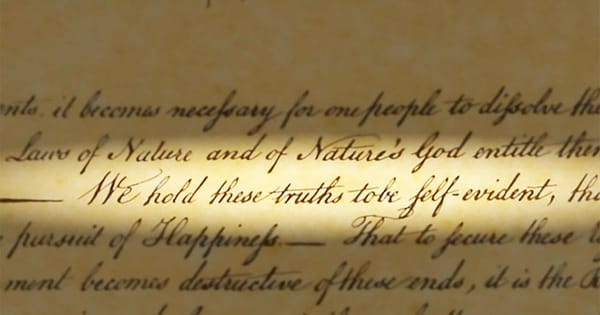 ents, it becomes neceſsary for one people to diſsolve the
Laws of Nature and of Nature's God entitle them
— We hold these truths to be ſelf-evident, tha
pursuit of Happineſs. — That to ſecure these
ment becomes destructive of these ends, it is the